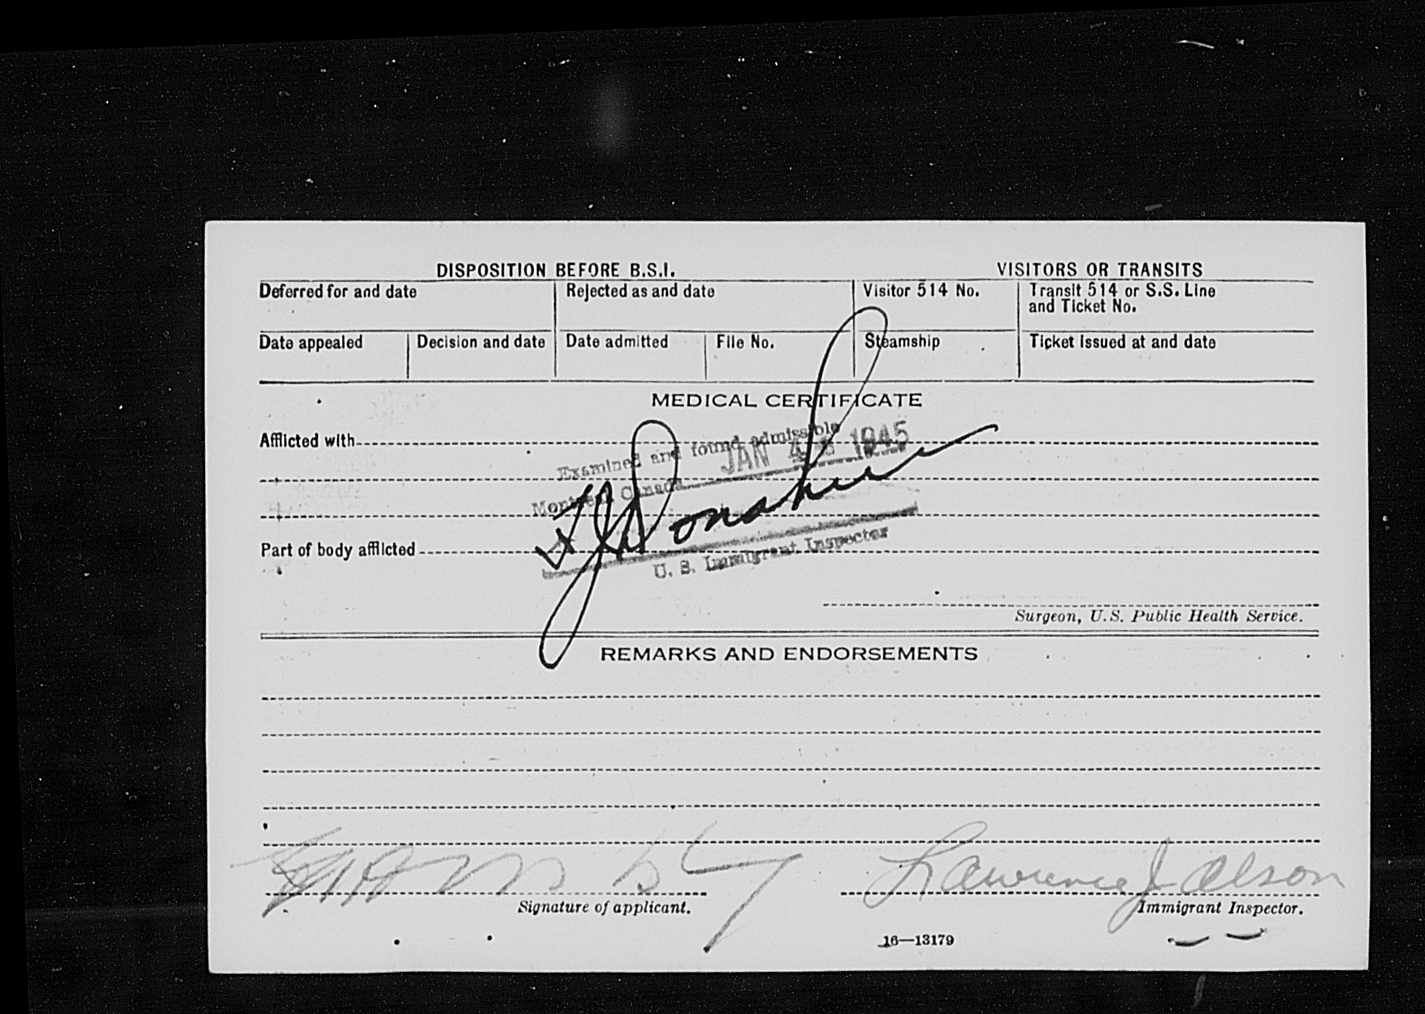 DISPOSITION BEFORE B.S.I. VISITORS OR TRANSITS
Deferred for and date Rejected as and date Visitor 514 No. Transit 514 or S.S. Line
and Ticket No.
Date appealed Decision and date Date admitted File No. Steamship Ticket issued at and date
MEDICAL CERTIFICATE
Afflicted with
Examined and found admissible
JAN 1945
Montreal Canada
Donahue
Part of body afflicted
U. S. Immigrant Inspector
Surgeon, U.S. Public Health Service.
REMARKS AND ENDORSEMENTS
Lawrence J Olson
Signature of applicant. Immigrant Inspector.
16—13179